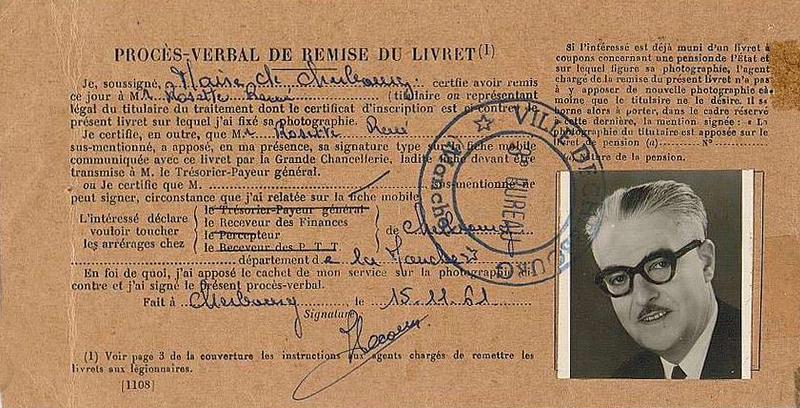 PROCÈS-VERBAL DE REMISE DU LIVRET (1)
Je, soussigné, Maire de Cherbourg certfie avoir remis
ce jour à M. Rosette René (titulaire ou représentant
légal du titulaire du traitement dont le certificat d'inscription est si contre le
présent livret sur lequel j'ai fixé sa photographie.
Je certifie, en outre, que M. Rosette René
sus-mentionné, a apposé, en ma présence, sa signature type sur la fiche mobile
communiquée avec ce livret par la Grande Chancellerie, ladite fiche devant être
transmise à M. le Trésorier-Payeur général.
ou Je certifie que M. sus-mentionné ne
peut signer, circonstance que j'ai relatée sur la fiche mobile
L'intéressé déclare vouloir toucher les arrérages chez
le Trésorier-Payeur général
le Receveur des Finances
le Percepteur
le Receveur des P. T. T.
de Cherbourg
département de la Manche
En foi de quoi, j'ai apposé le cachet de mon service sur la photographie
contre et j'ai signé le présent procès-verbal.
Fait à Cherbourg, le 15.11.61
Signature
(1) Voir page 3 de la couverture les instructions aux agents chargés de remettre les
livrets aux légionnaires.
[1108]
Si l'intéressé est déjà muni d'un livret à
coupons concernant une pension de l'Etat et
sur lequel figure sa photographie, l'agent
chargé de la remise du présent livret n'a pas
à y apposer de nouvelle photographie à
moins que le titulaire ne le désire. Il se
borne alors à porter, dans le cadre réservé
cette dernière, la mention signée : « La
photographie du titulaire est apposée sur le
livret de pension (a) N°
(a) Nature de la pension.
VILLE DE CHERBOURG
BUREAU
Manche